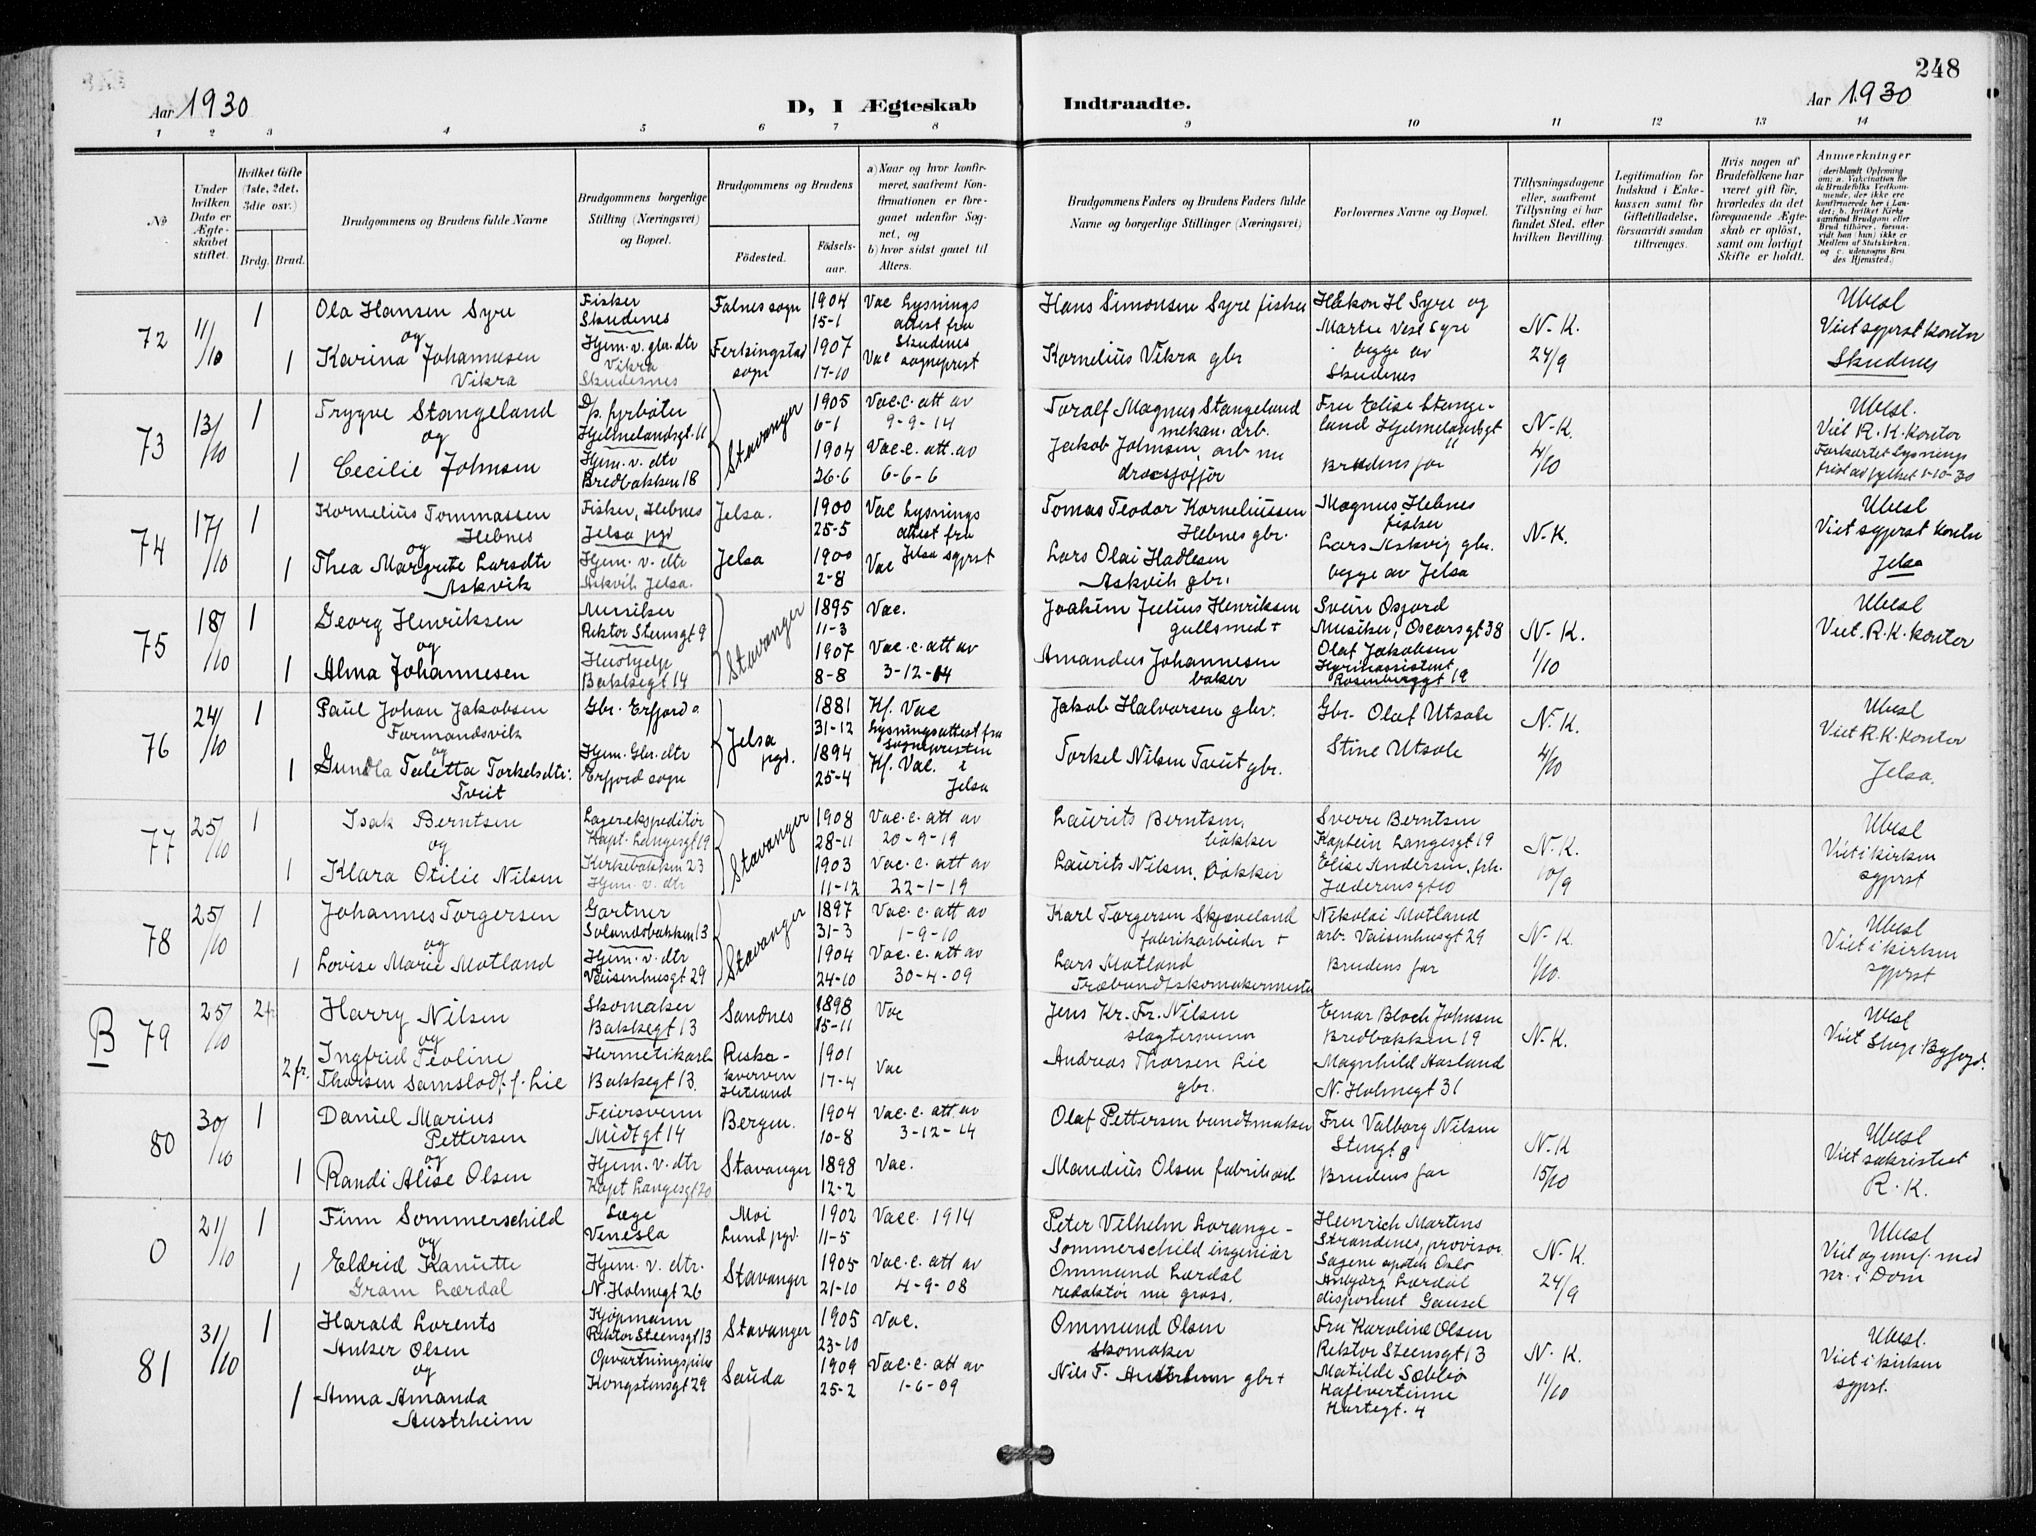 248
Aar 1930
D, I Ægteskab Indtraadte.
Aar 1930
1 2 3 4 5 6 7 8 9 10 11 12 13 14
No
Under hvilken Dato er Ægteskabet stiftet.
Hvilket Gifte (1ste, 2det, 3die osv.)
Brdg. Brud.
Brudgommens og Brudens fulde Navne
Brudgommens borgerlige Stilling (Næringsvei) og Bopæl.
Brudgommens og Brudens
Fødested.
Fødselsaar.
a) Naar og hvor konfirmeret, saafremt Konfirmationen er foregaaet udenfor Sognet, og
b) hvor sidst gaaet til Alters.
Brudgommens Faders og Brudens Faders fulde Navne og borgerlige Stillinger (Næringsvei)
Forlovernes Navne og Bopæl.
Tillysningsdagene eller, saafremt Tillysning ei har fundet Sted, efter hvilken Bevilling.
Legitimation for Indskud i Enkekassen samt for Giftetilladelse, forsaavidt saadan tiltrænges.
Hvis nogen af Brudefolkene har været gift før, hvorledes da det foregaaende Ægteskab er opløst, samt om lovligt Skifte er holdt.
Anmærkninger
(deriblandt Oplysning om: a. Vakcination for de Brudefolks Vedkommende, der ikke ere konfirmerede her i Landet; b. hvilket Kirkesamfund Brudgom eller Brud tilhører, forsaavidt han (hun) ikke er Medlem af Statskirken, og c. udensogns Brudes Hjemsted.)
72
11/10
1
Ola Hansen Syre
og
1
Karina Johannesen
Vikra
Fisker
Skudenes
Hjem. v. gbr. dtr
Vikra
Skudesnes
Falnes sogn
Ferkingstad sogn
1904
15-1
1907
17-10
Vac Lysnings
attest fra
Skudenes
Vac sogneprest
Hans Simonsen Syre fisker
Kornelius Vikra gbr
Håkon H Syre og
Martin Vest Syre
begge av
Skudenes
N. K.
24/9
Ubesl
Viet sgprst kontor
Skudenes
73
13/10
1
Trygve Stangeland
og
1
Cecilie Johnsen
D/p. fyrbøter
Hjelmelandsgt. 11
Hjem. v. dtr
Bredbakken 18
Stavanger
1905
6-1
1904
26-6
Vac. c. att av
9-9-14
Vac. c. att. av
6-6-6
Toralf Magnus Stangeland
mekan. arb.
Jakob Johnsen, arb nu
Fru Elise Stangeland Hjelmelandsgt
11
Brudens far
N. K.
4/10
Ubesl.
Viet R. K. kontor
Forkortet lysnings
frist av fylket 1-10-30
74
17/10
1
Kornelius Tommassen
Hebnes
og
1
Thea Margrete Larsdtr
Askvik
Fisker, Hebnes
Jelsa pgd
Hjem. v. dtr
Askvik Jelsa.
Jelsa.
Jelsa
1900
25-5
1900
2-8
Vac Lysnings
attest fra
Jelsa sgprst
Vac
Tomas Teodor Korneliussen
Hebnes gbr.
Lars Olai Hadlesen
Askvik gbr.
Magnus Hebnes
fisker
Lars Askvig gbr.
begge av Jelsa
N. K.
Ubesl
Viet sgprst kontor
Jelsa
75
18/10
1
Georg Henriksen
og
1
Alma Johannesen
Musiker
Rektor Steensgt 9
Hushjelp
Bakkegt 14
Stavanger
1895
11-3
1907
8-8
Vac.
Vac. c. att av
3-12-14
Joakim Julius Henriksen
gullsmed +
Amandus Johannesen
baker
Svein Osfjord
Musiker, Oscarsgt 38
Olaf Jakobsen
Rosenberggt 19
N. K.
1/10
Ubesl
Viet. R. K. kontor
76
24/10
1
Paul Johan Jakobsen
Formandsvik
og
1
Gundla Teletta Torkelsdtr.
Tveit
Gbr. Erfjord
Hjem. Gbr. dtr
Erfjord sogn
Jelsa
pgd.
1881
31-12
1894
25-4
Kf. Vac
Lysningsattest fra
Sognepresten
i
Kf. Vac.
Jelsa
Jakob Halvorsen gbr.
Torkel Nilsen Tveit gbr.
Gbr. Olaf Utsole
Stine Utsole
N. K.
4/10
Ubesl
Viet R. K. kontor
Jelsa.
77
25/10
1
Isak Berntsen
og
1
Klara Otilie Nilsen
Lagerekspeditør
Kapt. Langesgt 19
Kirkebakken 23
Hjem. v. dtr
Stavanger
1908
28-11
1903
11-12
Vac. c. att av
20-9-19
Vac. c. att av
22-1-19
Laurits Berntsen,
bøkker
Laurits Nilsen, Bøkker
Sverre Berntsen
Kaptein Langesgt 19
Elise Andersen, frk.
Jæderensgt 10
N. K.
10/9
Ubesl
Viet i kirken
sgprst
78
25/10
1
Johannes Torgersen
og
1
Lovise Marie Motland
Gartner
Solandsbakken 13
Hjem. v. dtr
Vaisenhusgt 29
Stavanger
1897
31-3
1904
24-10
Vac. c. att av
1-9-10
Vac. c. att av
30-4-09
Karl Torgersen Skjæveland
fabrikarbeider +
Lars Motland
Træbundtskomakermester
Nikolai Motland
arb. Vaisenhusgt 29
Brudens far
N. K.
1/10.
Ubesl
Viet i kirken
sgprst
B
79
25/10
2 fr
Harry Nilsen
og
2 fr.
Ingfrid Teoline
Thorsen Samslodt f. Lie
Skomaker
Bakkegt 13
Hermetikarb
Bakkegt 13.
Sandnes
Riska-
kverven
Hetland
1898
15-11
1901
17-4
Vac
Vac
Jens Kr. Fr. Nilsen
slagtersvenn
Andreas Thorsen Lie
gbr.
Einar Bloch Johnsen
Bredbakken 19
Magnhild Aasland
N. Holmegt 31
N. K.
Ubesl
Viet Stvgr Byfogd.
80
30/10
1
Daniel Marius
Pettersen
og
1
Randi Alise Olsen
Feiersvenn
Midtgt 14
Hjem. v. dtr
Kapt Langesgt 20
Bergen.
Stavanger
1904
10-8
1898
12-2
Vac. c. att. av
3-12-14
Vac.
Olaf Pettersen bundtmaker
Mandius Olsen fabrikarb
Fru Valborg Nilsen
Stengt 8
Brudens far
N. K
15/10
Ubesl
Viet sakristiet
R. K.
0
21/10
1
Finn Sommerschild
og
1
Eldrid Kanutte
Gram Lærdal
Læge
Venesla
Hjem. v. dtr.
N. Holmegt 26
Moi
Lund pgd.
Stavanger
1902
11-5
1905
21-10
Vacc. 1914
Vac. c. att av
4-9-08
Peter Vilhelm Lorange-
Sommerschild ingeniør
Ommund Lærdal
redaktør nu gross.
Heinrich Martens
Strandenes, provisor
Sagene apotek Oslo
Anbjørg Lærdal
disponent Gausel
N. K.
24/9
Ubesl
Viet og innf. med
nr. i Dom
81
31/10
1
Harald Lorents
Anker Olsen
og
1
Anna Amanda
Austrheim
Kjøpmann
Rektor Steensgt 13
Opvartningspike
Kongstensgt 29
Stavanger
Sauda
1905
23-10
1909
25-2
Vac.
Vac. c. att av
1-6-09
Ommund Olsen
Skomaker
Nils T. Austrheim gbr +
Fru Karoline Olsen
Rektor Steensgt 13
Matilde Sæbbø
Kafevertinne
Kortegt. 4
N. K.
11/10
Ubesl.
Viet i kirken
sgprst.